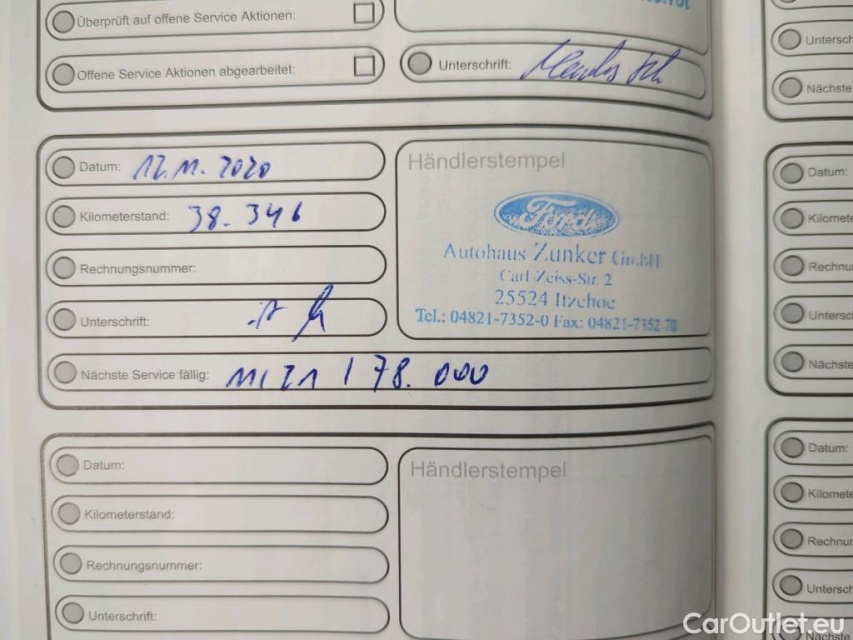 Überprüft auf offene Service Aktionen:
Offene Service Aktionen abgearbeitet:
Unterschrift:
Datum: 12.11.2020
Kilometerstand: 38.346
Rechnungsnummer:
Unterschrift:
Nächste Service fällig: 11/21 / 78.000
Händlerstempel
Ford
Autohaus Zunker GmbH
Carl-Zeiss-Str. 2
25524 Itzehoe
Tel.: 04821-7352-0 Fax: 04821-7352-70
Datum:
Kilometerstand:
Rechnungsnummer:
Unterschrift:
Händlerstempel
Untersch
Nächste
Datum:
Kilomete
Rechnu
Untersc
Nächste
Datum:
Kilomete
Rechnur
Untersch
Nächste
CarOutlet.eu